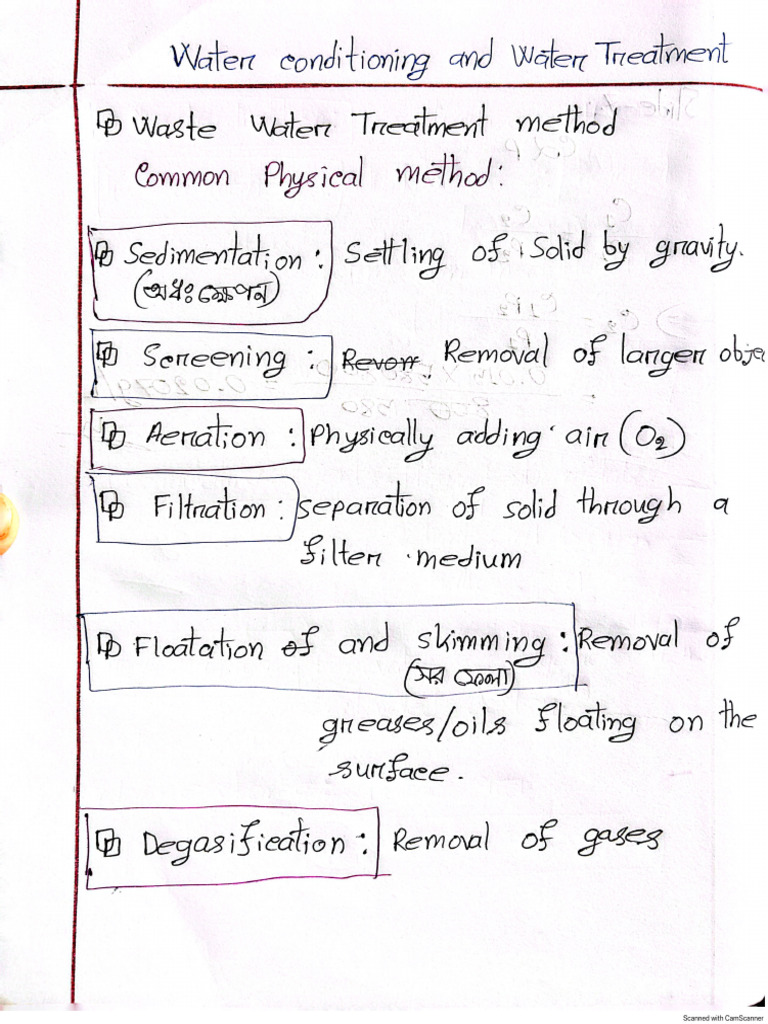 Water conditioning and Water Treatment
Waste Water Treatment method
Common Physical method:
Sedimentation: Settling of Solid by gravity.
(অধঃক্ষেপন)
Screening: Removal of larger obje
Aeration: Physically adding air (O₂)
Filtration: separation of solid through a
filter medium
Floatation of and skimming: Removal of
(সর ফেলা)
greases/oils floating on the
surface.
Degasification: Removal of gases
Scanned with CamScanner